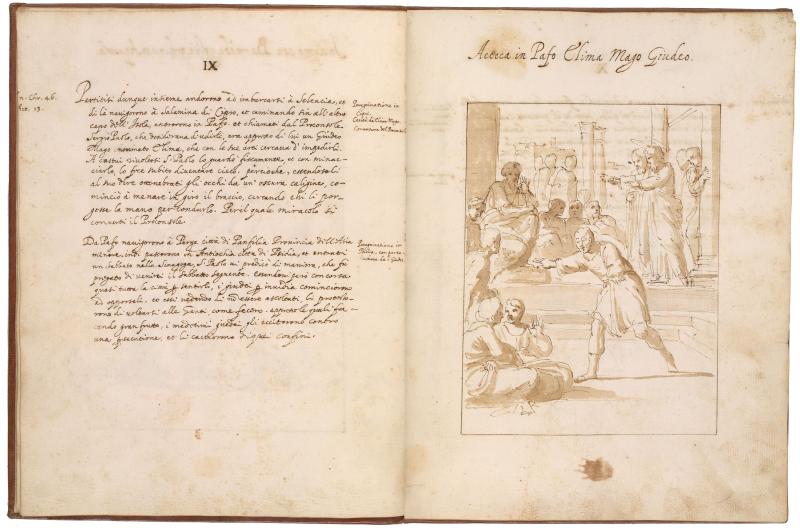 IX
An. Chr. 46.
Act. 13.
Partititi dunque insieme andorono ad imbarcarsi à Selencia, et
di là navigorono à Salamina di Cipro, et caminando fin all'altro
capo dell'Isola, entrorono in Pafo. et chiamati dal Proconsole
Sergio Paolo, che desiderava d'udirli, era appresso di lui un Giudeo
Mago nominato Elima, che con le sue arti cercava d'impedirli.
A costui rivoltosi S. Paolo lo guardò fissamente, et con minac-
ciarlo, lo fece subito diventare cieco, percioche, essendoseli
al suo dire ottenebrati gli occhi da un'oscura caligine, co-
minciò à menare in giro il braccio, cercando chi li por-
gesse la mano per condurlo. Per il quale miracolo si
convertì il Proconsole.
Peregrinatione in
Cipri.
Cecità di Elima Mago.
Conversione del
Da Pafo navigorono à Perge città di Panfilia Provincia dell'Asia
minore, indi passorono in Antiochia città di Pisidia, et entrati
un sabbato nella Sinagoga, S. Paolo vi predicò di maniera, che fu
pregato di venirvi il sabbato seguente. essendovi però concorsa
quasi tutta la città per sentirlo, i giudei per invidia cominciorono
ad opporseli. et essi vedendo di nō essere ascoltati, si protesto-
rono di voltarsi alle Genti come fecero. appresso le quali fa-
cendo gran frutto, i medesimi giudei gli eccitorono contro
una persecutione, et li cacciorono d'quei confini.
Peregrinatione in
con
Acceca in Pafo Elima Mago Giudeo.